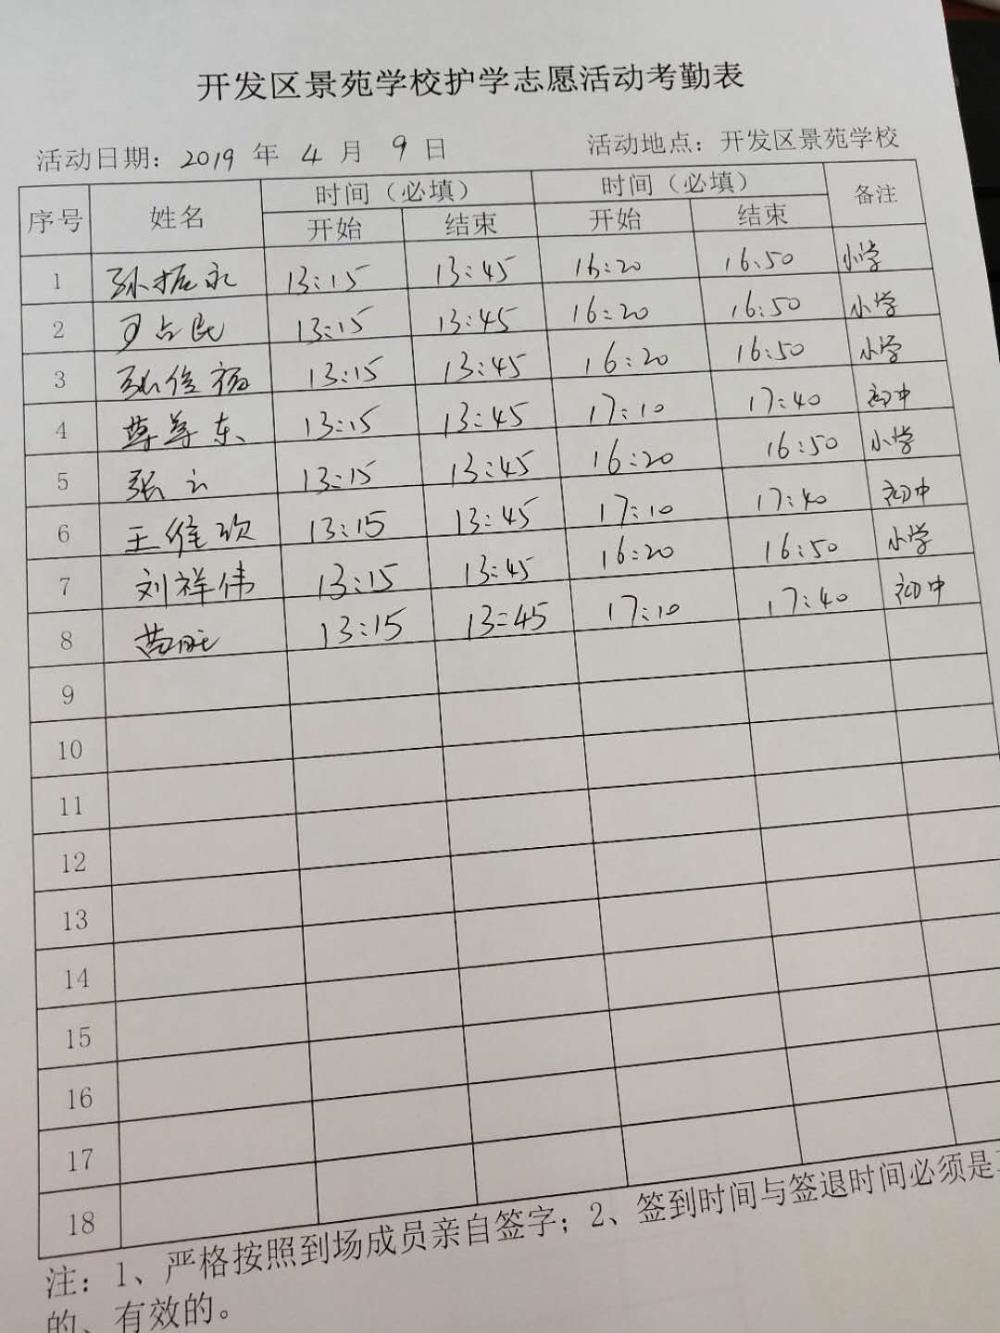 开发区景苑学校护学志愿活动考勤表
活动日期: 2019 年 4 月 9 日 活动地点: 开发区景苑学校
序号 姓名 时间（必填） 时间（必填） 备注
开始 结束 开始 结束
1 孙振永 13:15 13:45 16:20 16:50 小学
2 占民 13:15 13:45 16:20 16:50 小学
3 俊福 13:15 13:45 16:20 16:50 小学
4 东 13:15 13:45 17:10 17:40 初中
5 张 13:15 13:45 16:20 16:50 小学
6 王维欢 13:15 13:45 17:10 17:40 初中
7 刘祥伟 13:15 13:45 16:20 16:50 小学
8 13:15 13:45 17:10 17:40 初中
9
10
11
12
13
14
15
16
17
18
注: 1、严格按照到场成员亲自签字; 2、签到时间与签退时间必须是
的、有效的。